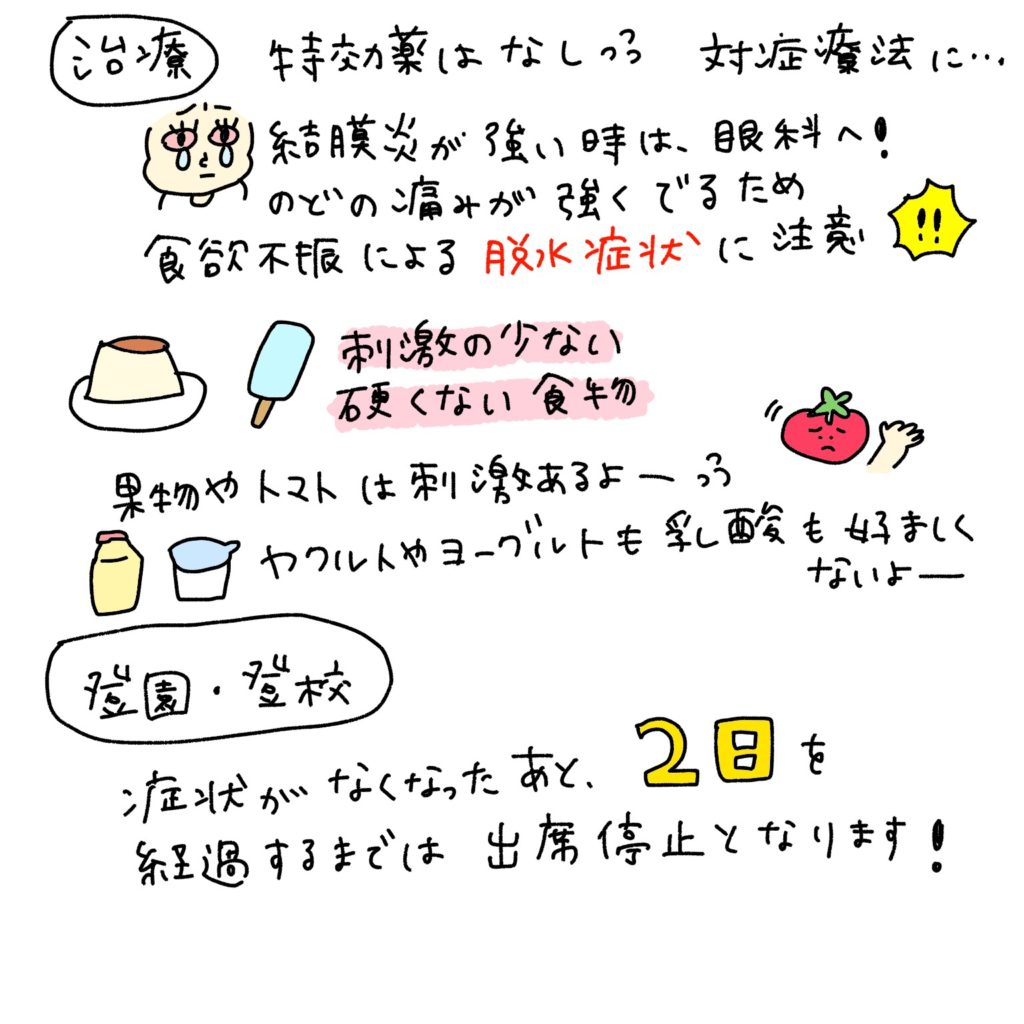 治療 特効薬はなしっっ 対症療法に…
結膜炎が強い時は、眼科へ!
のどの痛みが強くでるため
食欲不振による脱水症状に注意
!!
刺激の少ない
硬くない食物
果物やトマトは刺激あるよーっっ
ヤクルトやヨーグルトも乳酸も好ましく
ないよー
登園・登校
症状がなくなったあと、2日を
経過するまでは出席停止となります!